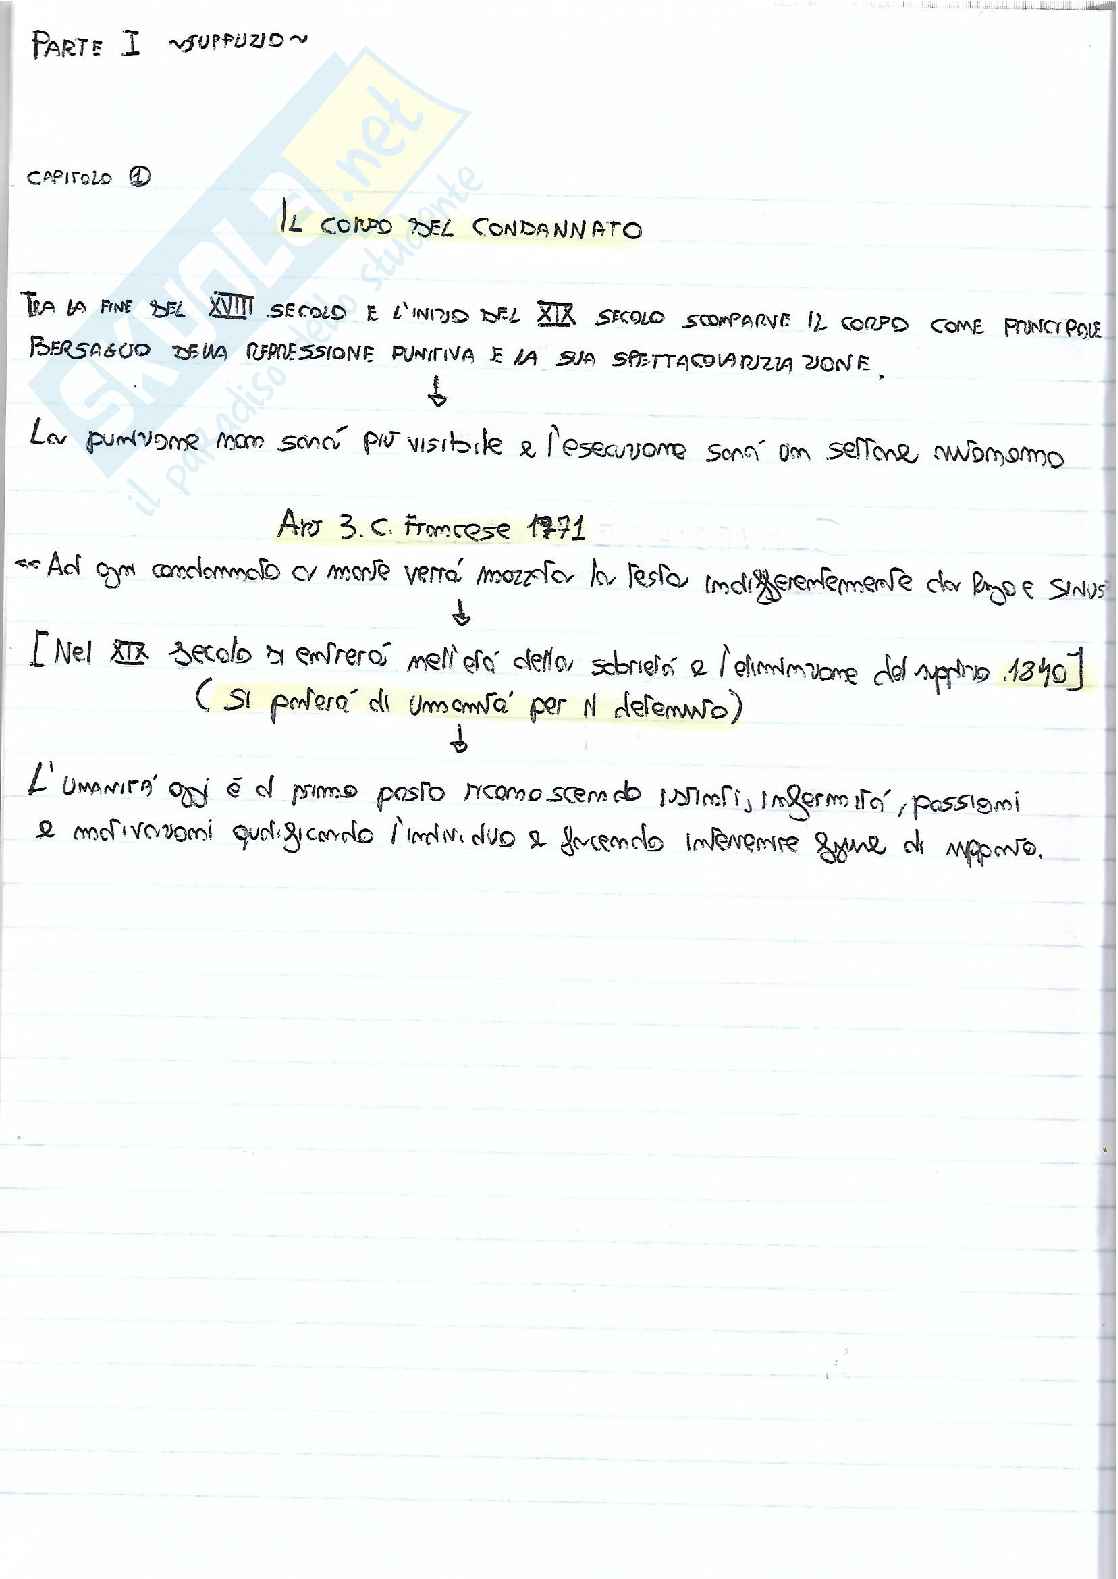 PARTE I ~SUPPLIZIO~
CAPITOLO 1
IL CORPO DEL CONDANNATO
TRA LA FINE DEL XVIII SECOLO E L'INIZIO DEL XIX SECOLO SCOMPARVE IL CORPO COME PRINCIPALE
BERSAGLIO DELLA REPRESSIONE PUNITIVA E LA SUA SPETTACOLARIZZAZIONE.
La punizione non sarà più visibile e l'esecuzione sarà un settore autonomo
Art 3. C. Francese 1771
<<Ad ogni condannato a morte verrà mozzata la testa indifferentemente da e
[Nel XIX secolo si entrerà nell'età della sobrietà e l'eliminazione del supplizio 1840]
(Si parlerà di umanità per il detenuto)
L'UMANITÀ oggi è al primo posto riconoscendo istinti, infermità, passioni
e motivazioni qualificando l'individuo e facendo intervenire figure di supporto.
SKUOLA.net
il paradiso dello studente